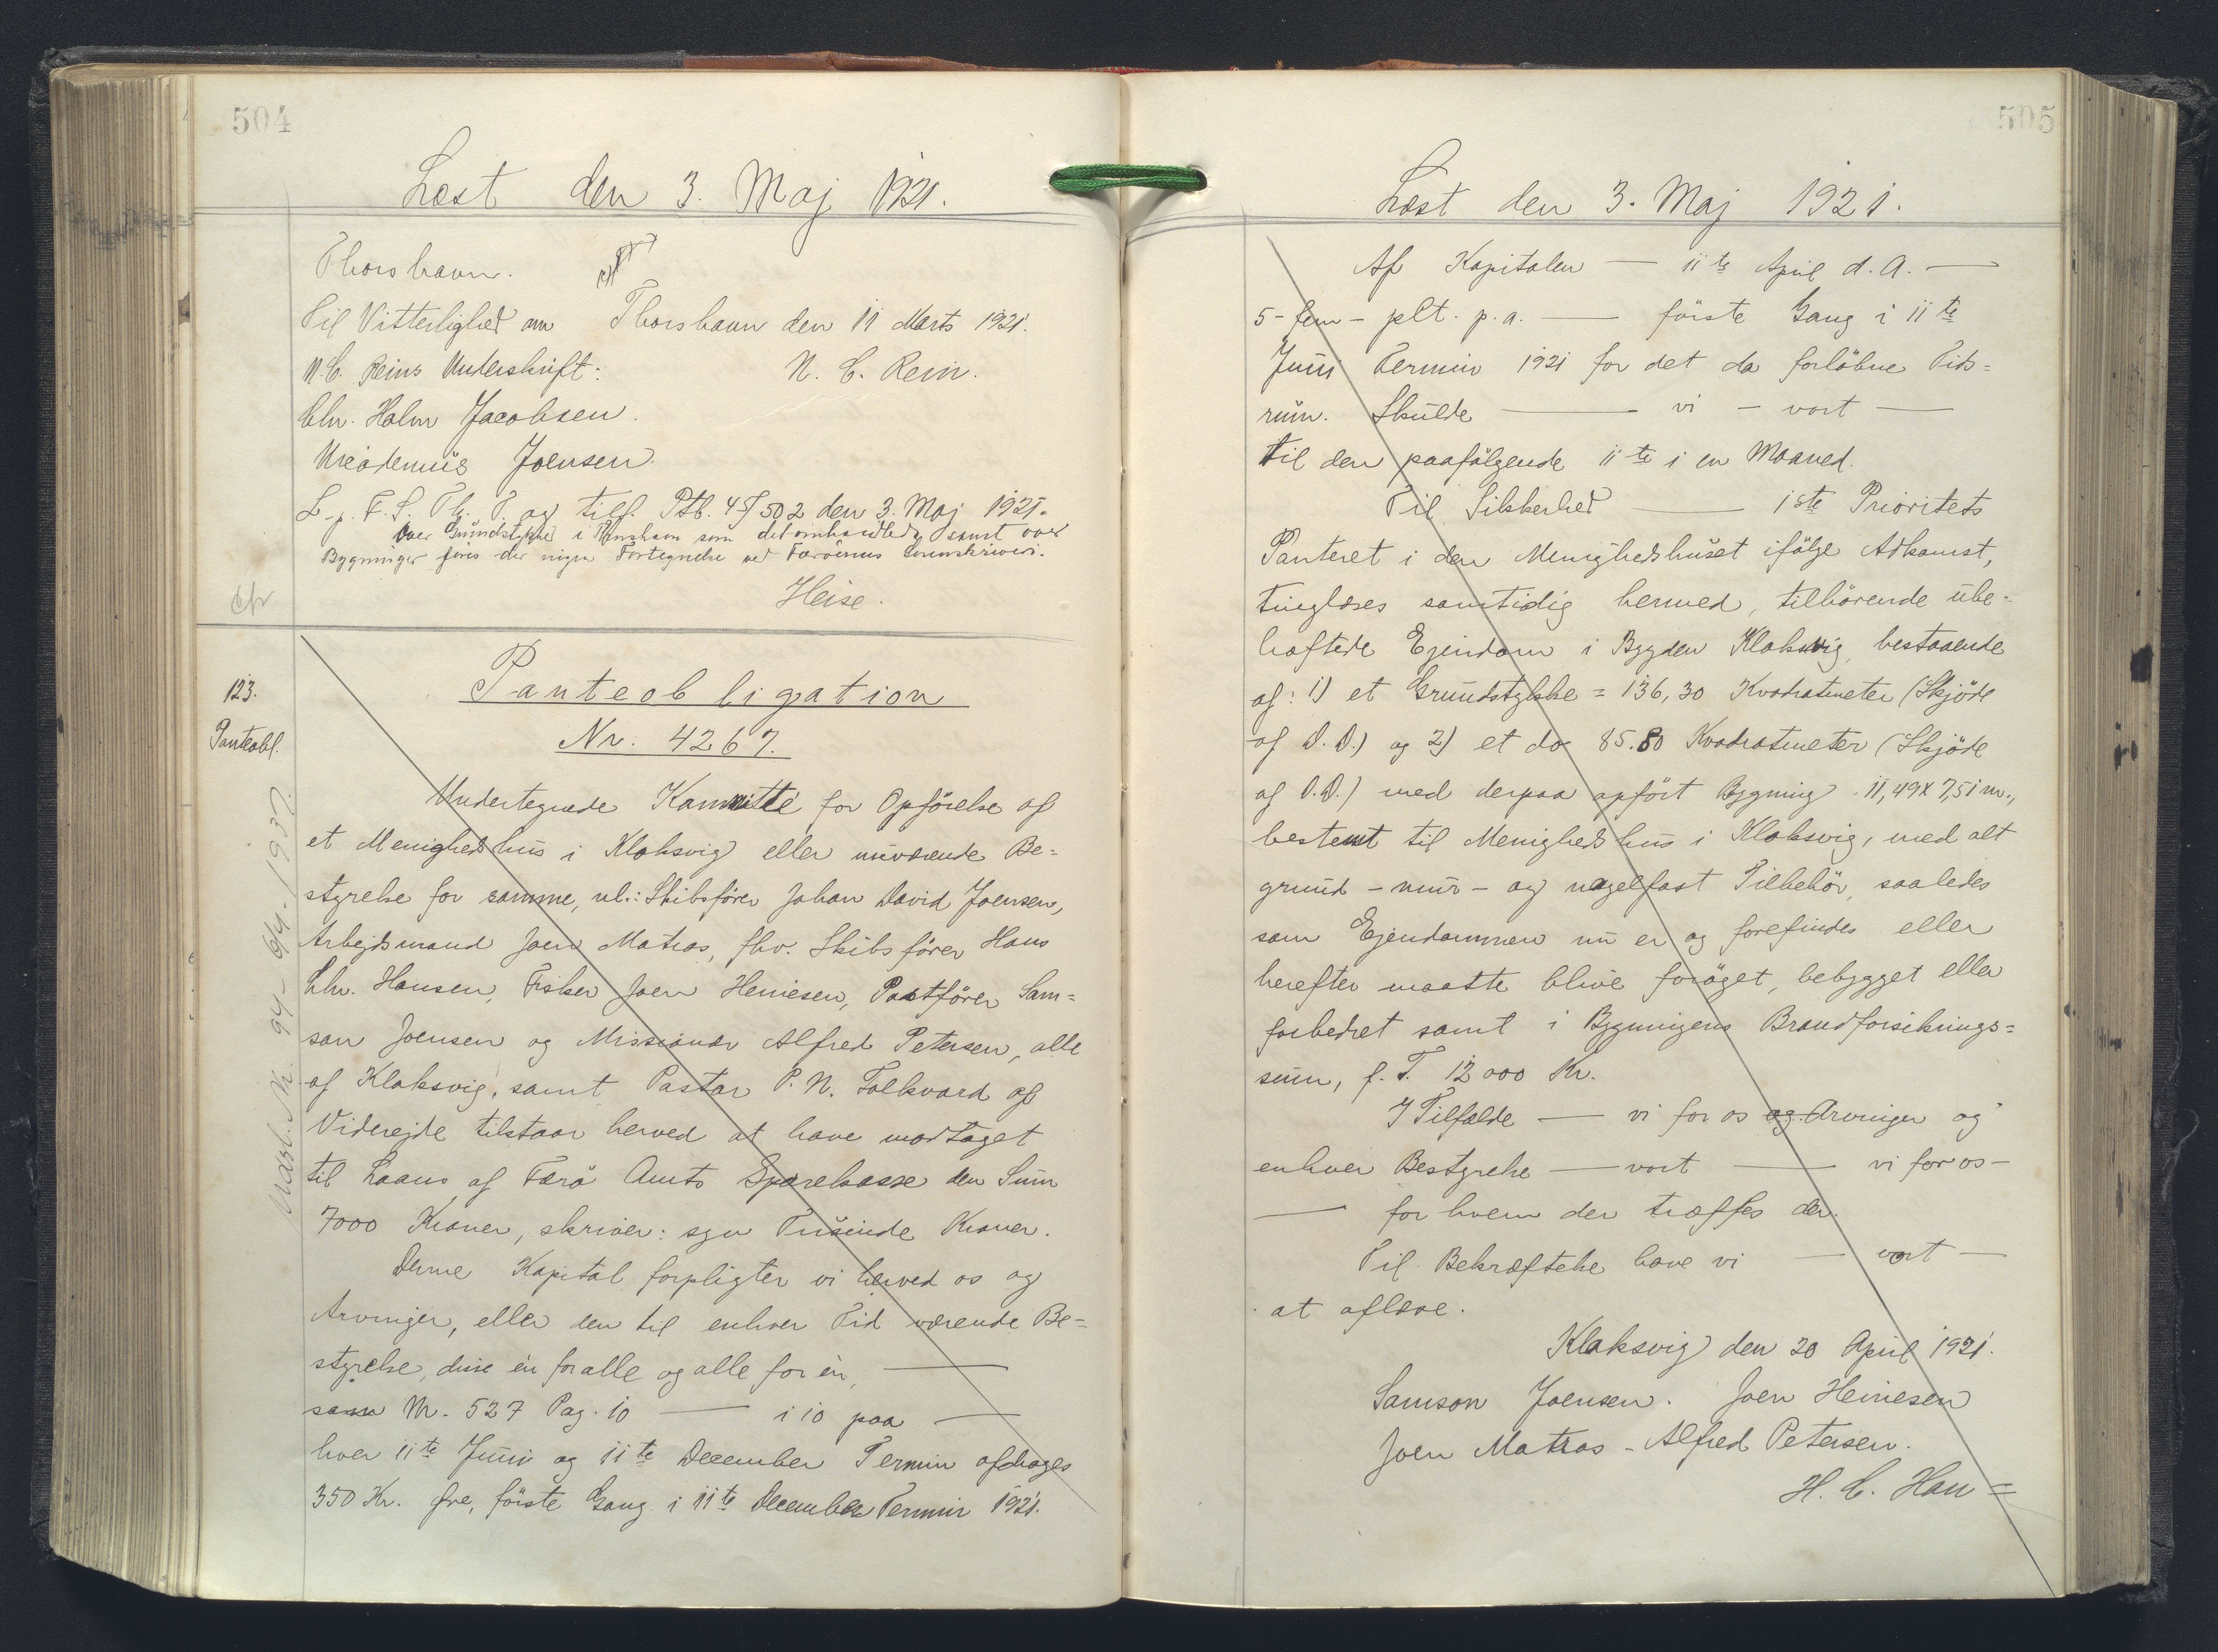 504
Læst den 3. Maj 1921.
Thorshavn.
Til Vitterlighed om Thorshavn den 11 Marts 1921.
N. C. Reins Underskrift: N. C. Rein.
Chr. Holm Jacobsen.
Joensen.
L. p. F. S. Th. T. og tilf. Ptb. 4 f 502 den 3. Maj 1921.
Over Grundstykket i Thorshavn som det omhandlede, samt over
Bygninger föres der ingen Fortegnelse ved Færöernes Sorenskriveri.
Heise.
123.
Panteobl.
Panteobligation
Nr. 4267.
Undertegnede Kommitté for Opförelse af
et Menighedshus i Klaksvig eller nuværende Be=
styrelse for samme, nl.: Skibsförer Johan David Joensen,
Arbejdsmand Joen Matras, fhv. Skibsförer Hans
Chr. Hansen, Fisker Joen Heinesen, Postförer Sam=
son Joensen og Missionær Alfred Petersen, alle
af Klaksvig, samt Pastor P. N. Folkvard af
Viderejde tilstaar herved at have modtaget
til Laans af Færö Amts Sparekasse den Sum
7000 Kroner, skriver: syv Tusinde Kroner.
Denne Kapital forpligter vi herved os og
Arvinger, eller den til enhver Tid værende Be=
styrelse, disse én for alle og alle for én, —
som Nr. 527 Pag. 10 — i 10 paa —
hver 11te Juni og 11te December Termin afdrages
350 Kr. Øre, förste Gang i 11te December Termin 1921.
Udsl. Nr. 94 - 6/4 - 1937.
505
Læst den 3. Maj 1921.
Af Kapitalen — 11te April d. A. —
5 - fem - pCt. p. a. — förste Gang i 11te
Juni Termin 1921 for det da forlöbne Tids=
rum. Skulde — vi — vort —
til den paafölgende 11te i en Maaned.
Til Sikkerhed — 1ste Prioritets
Panteret i den Menighedshuset ifölge Adkomst,
tinglæses samtidig hermed, tilhörende ube=
hæftede Ejendom i Bygden Klaksvig, bestaaende
af: 1) et Grundstykke = 136,30 Kvadratmeter (Skjöde
af D. D.) og 2) et do 85.80 Kvadratmeter (Skjöde
af D. D.) med derpaa opfört Bygning 11,49 x 7,51 m.,
bestemt til Menighedshus i Klaksvig, med alt
grund - mur - og nagelfast Tilbehör, saaledes
som Ejendommen nu er og forefindes eller
herefter maatte blive foröget, bebygget eller
forbedret samt i Bygningens Brandforsikrings=
sum, f. T. 12000 Kr.
I Tilfælde — vi for os og Arvinger og
enhver Bestyrelse — vort — vi for os —
— for hvem der træffes der.
Til Bekræftelse have vi — vort —
at aflæse.
Klaksvig den 20 April 1921.
Samson Joensen. Joen Heinesen
Joen Matras - Alfred Petersen.
H. C. Han=